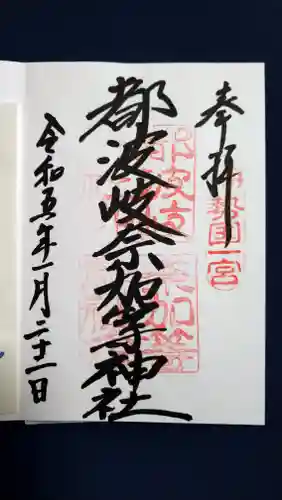 奉拝
伊勢国一宮
都波岐奈加等神社
令和五年一月二十一日